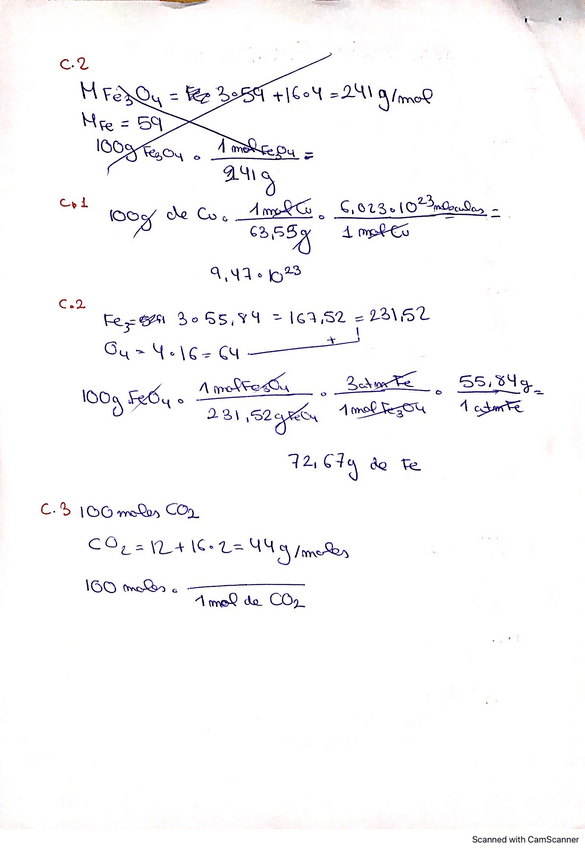 C.2
M Fe3O4 = 3·59 + 16·4 = 241 g/mol
MFe = 59
100g Fe3O4 · 1 mol Fe3O4 =
241 g
C.1 100g de Cu · 1 mol Cu · 6,023·10²³ moleculas =
63,55g 1 mol Cu
9,47·10²³
C.2
Fe3 = 3·55,84 = 167,52 = 231,52
O4 = 4·16 = 64 +
100g FeO4 · 1 mol Fe3O4 · 3 atm Fe · 55,84g =
231,52g FeO4 1 mol Fe3O4 1 atm Fe
72,67g de Fe
C.3 100 moles CO2
CO2 = 12 + 16·2 = 44 g/moles
100 moles ·
1 mol de CO2
Scanned with CamScanner